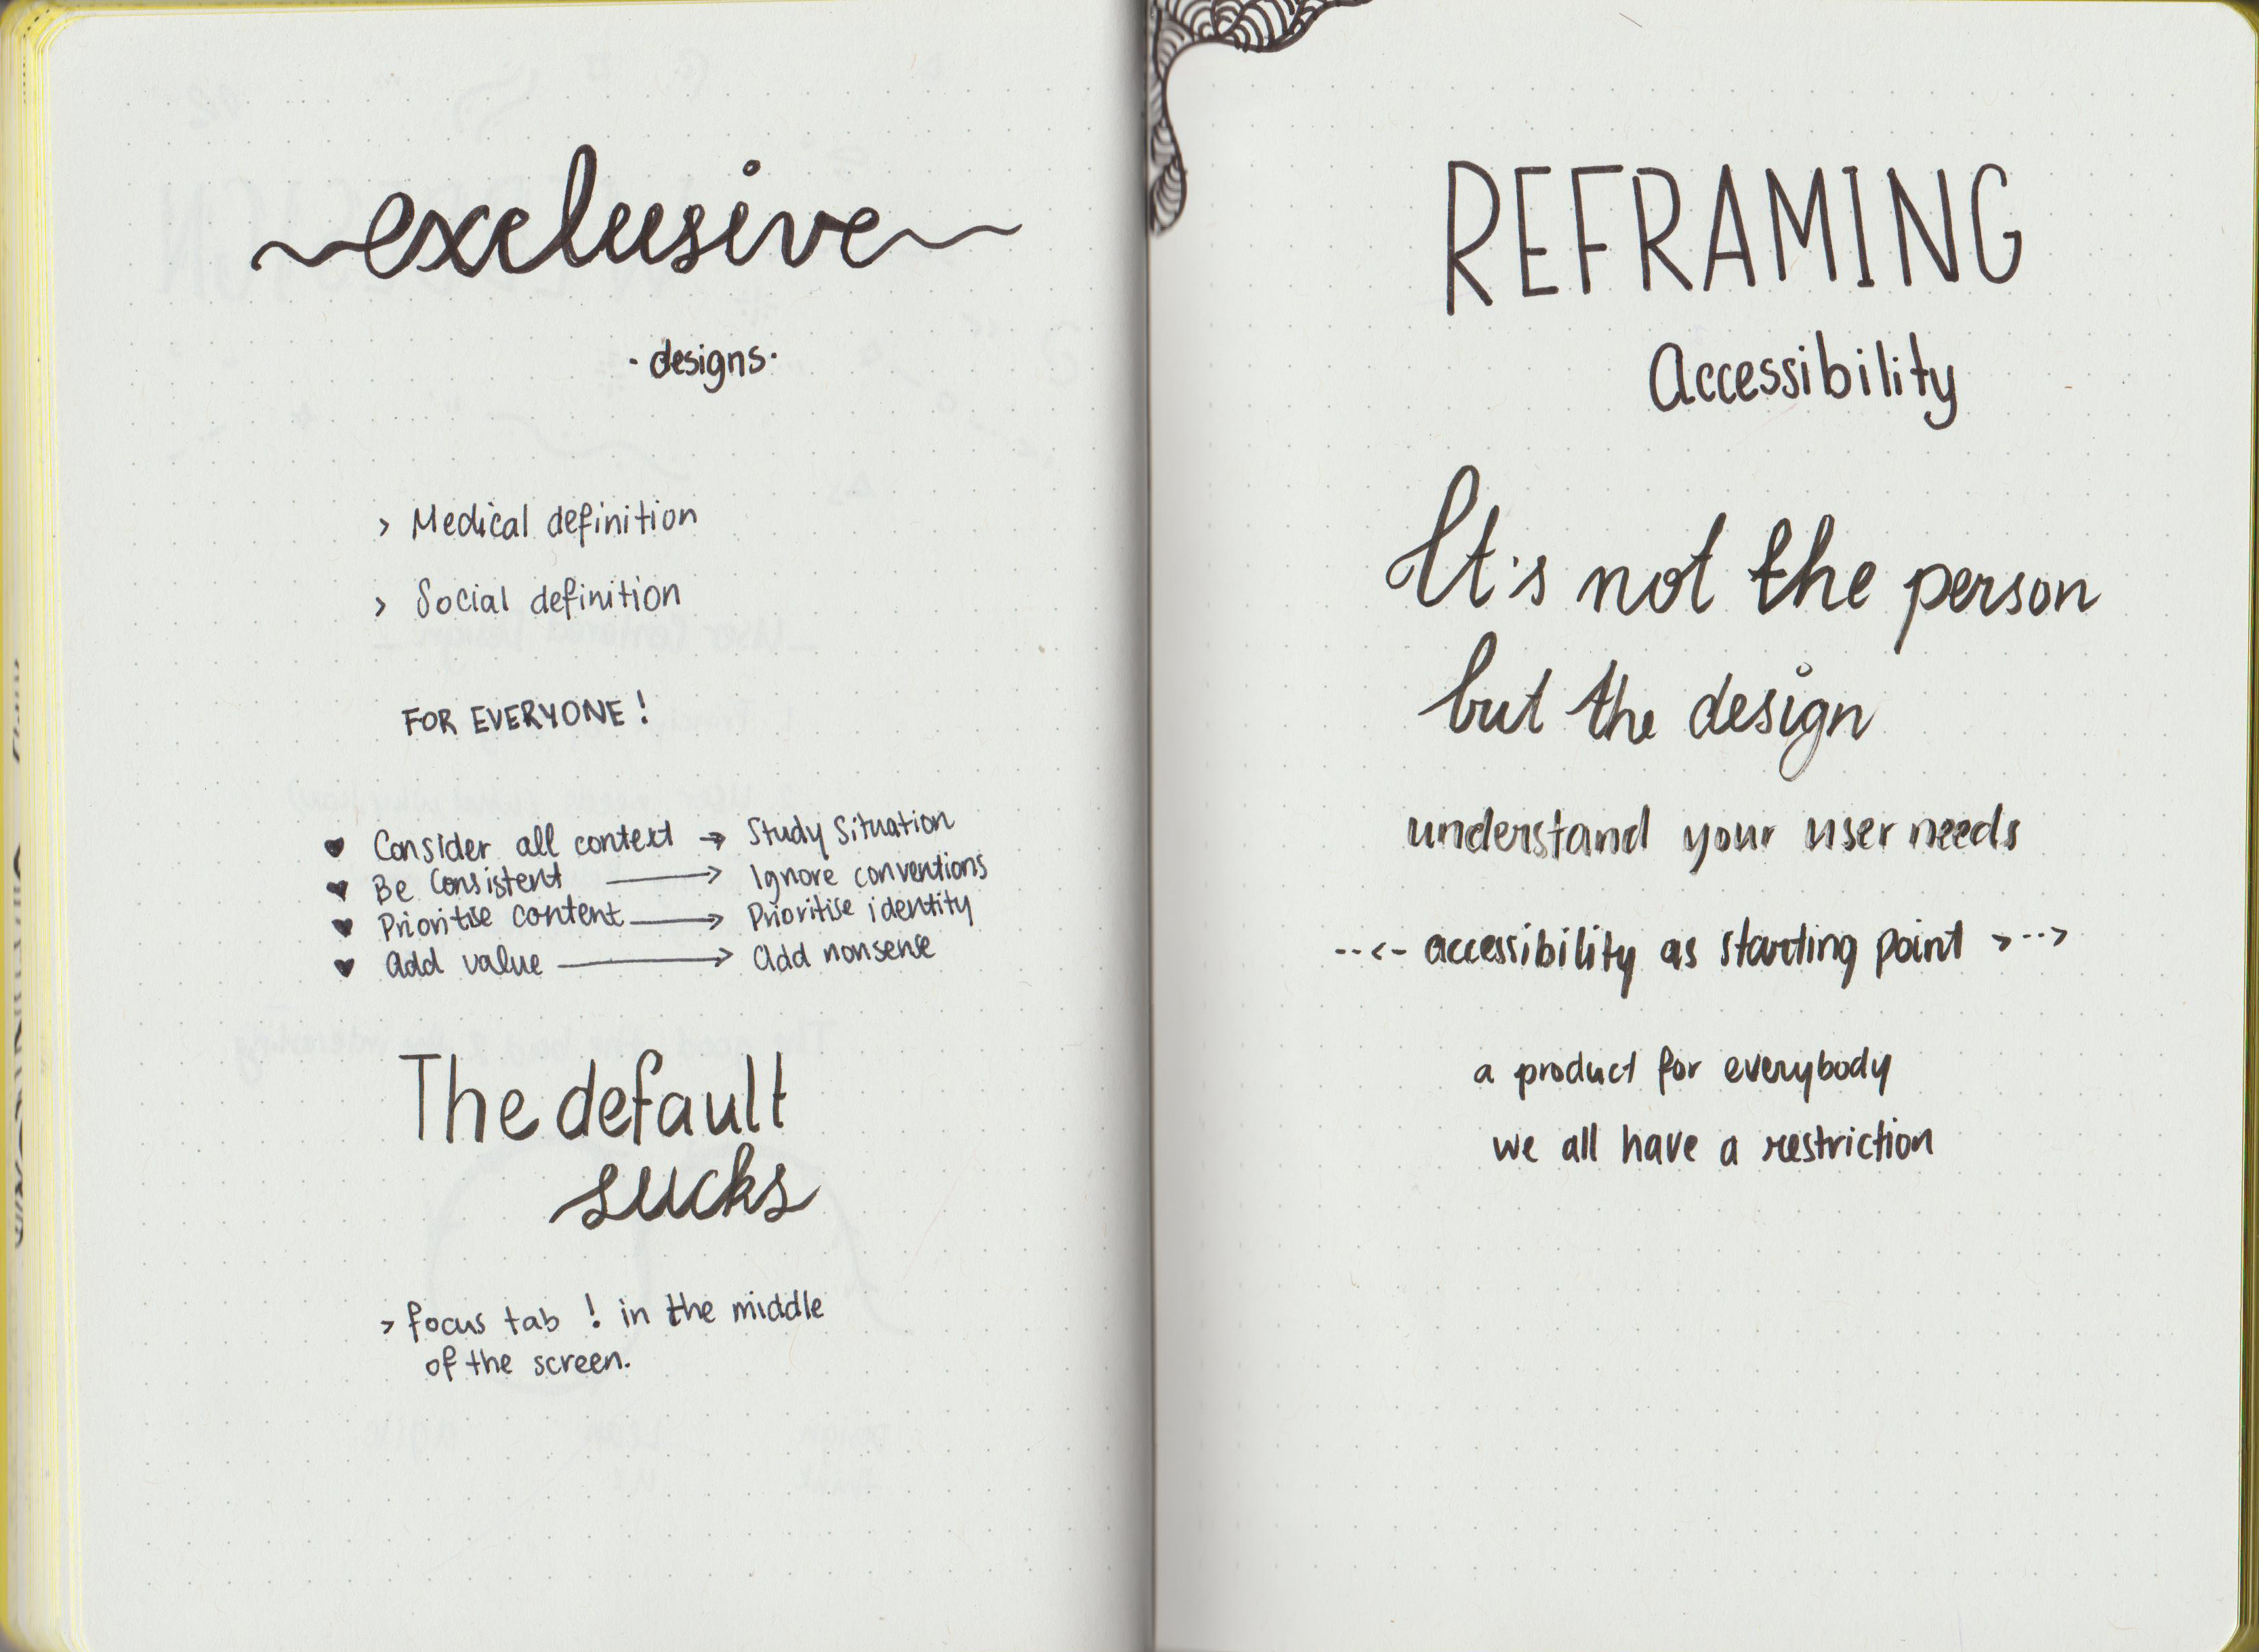 exclusive
· designs ·
> Medical definition
> Social definition
FOR EVERYONE!
♥ Consider all context → Study Situation
♥ Be Consistent → Ignore conventions
♥ Prioritise content → Prioritise identity
♥ Add value → Add nonsense
The default
sucks
> focus tab ! in the middle
of the screen.
REFRAMING
Accessibility
It's not the person
but the design
understand your user needs
--<- accessibility as starting point >-->
a product for everybody
we all have a restriction